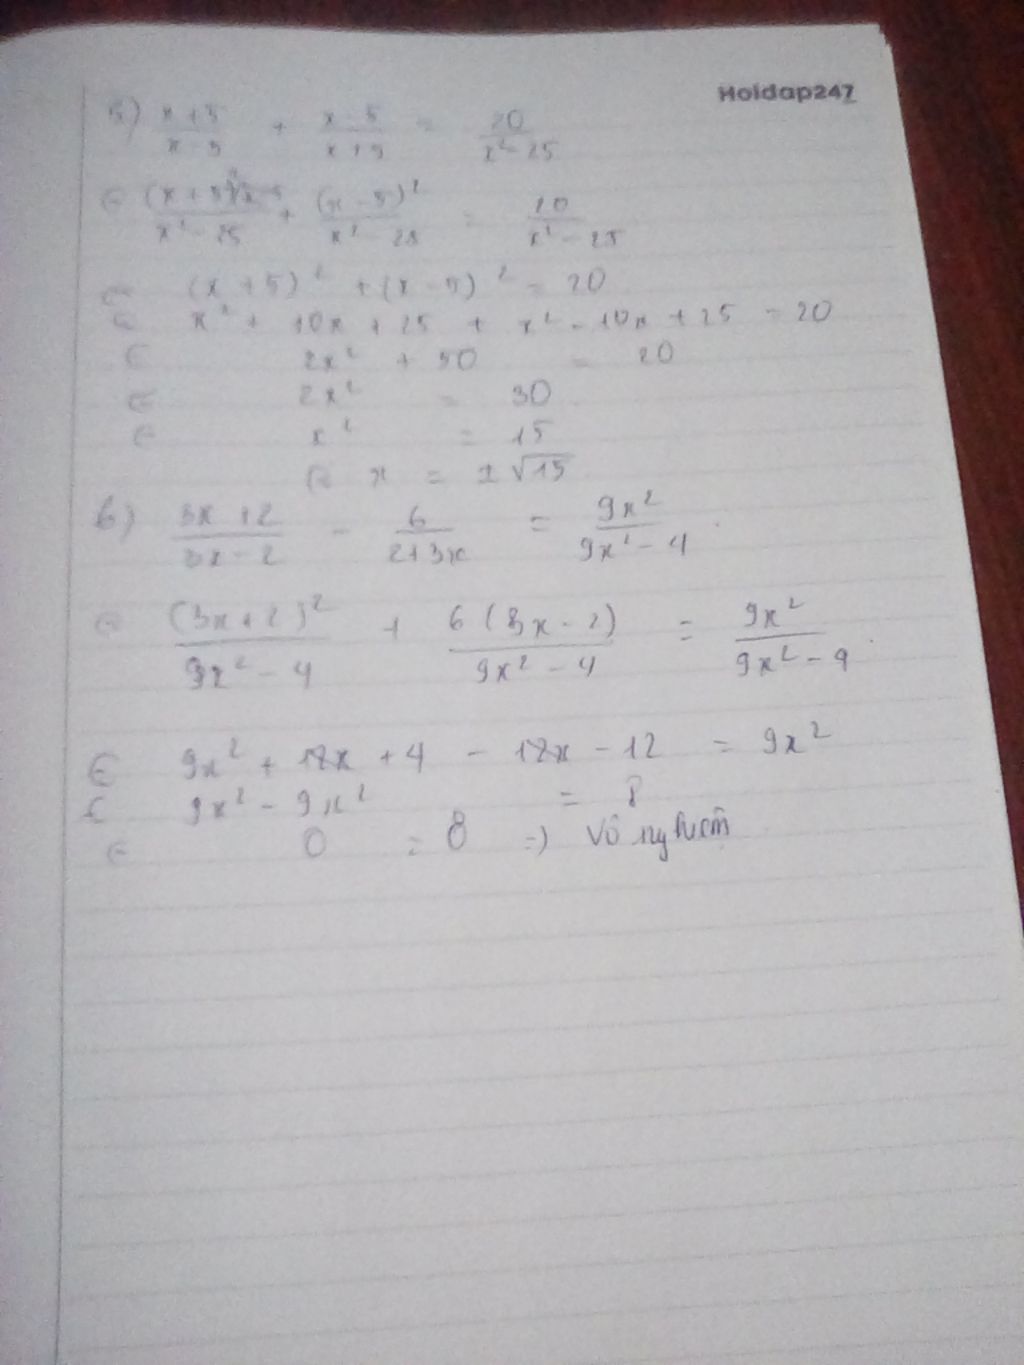 Hoidap247
5) x+5/x-5 + x-5/x+5 = 20/x²-25
(x+5)²/x²-25 + (x-5)²/x²-25 = 20/x²-25
(x+5)² + (x-5)² = 20
x² + 10x + 25 + x² - 10x + 25 = 20
2x² + 50 = 20
2x² = 30
x² = 15
x = ±√15
6) 3x+2/3x-2 - 6/2+3x = 9x²/9x²-4
(3x+2)²/9x²-4 + 6(3x-2)/9x²-4 = 9x²/9x²-9
9x² + 12x + 4 - 12x - 12 = 9x²
9x² - 9x² = 8
0 = 8 => Vô nghiệm